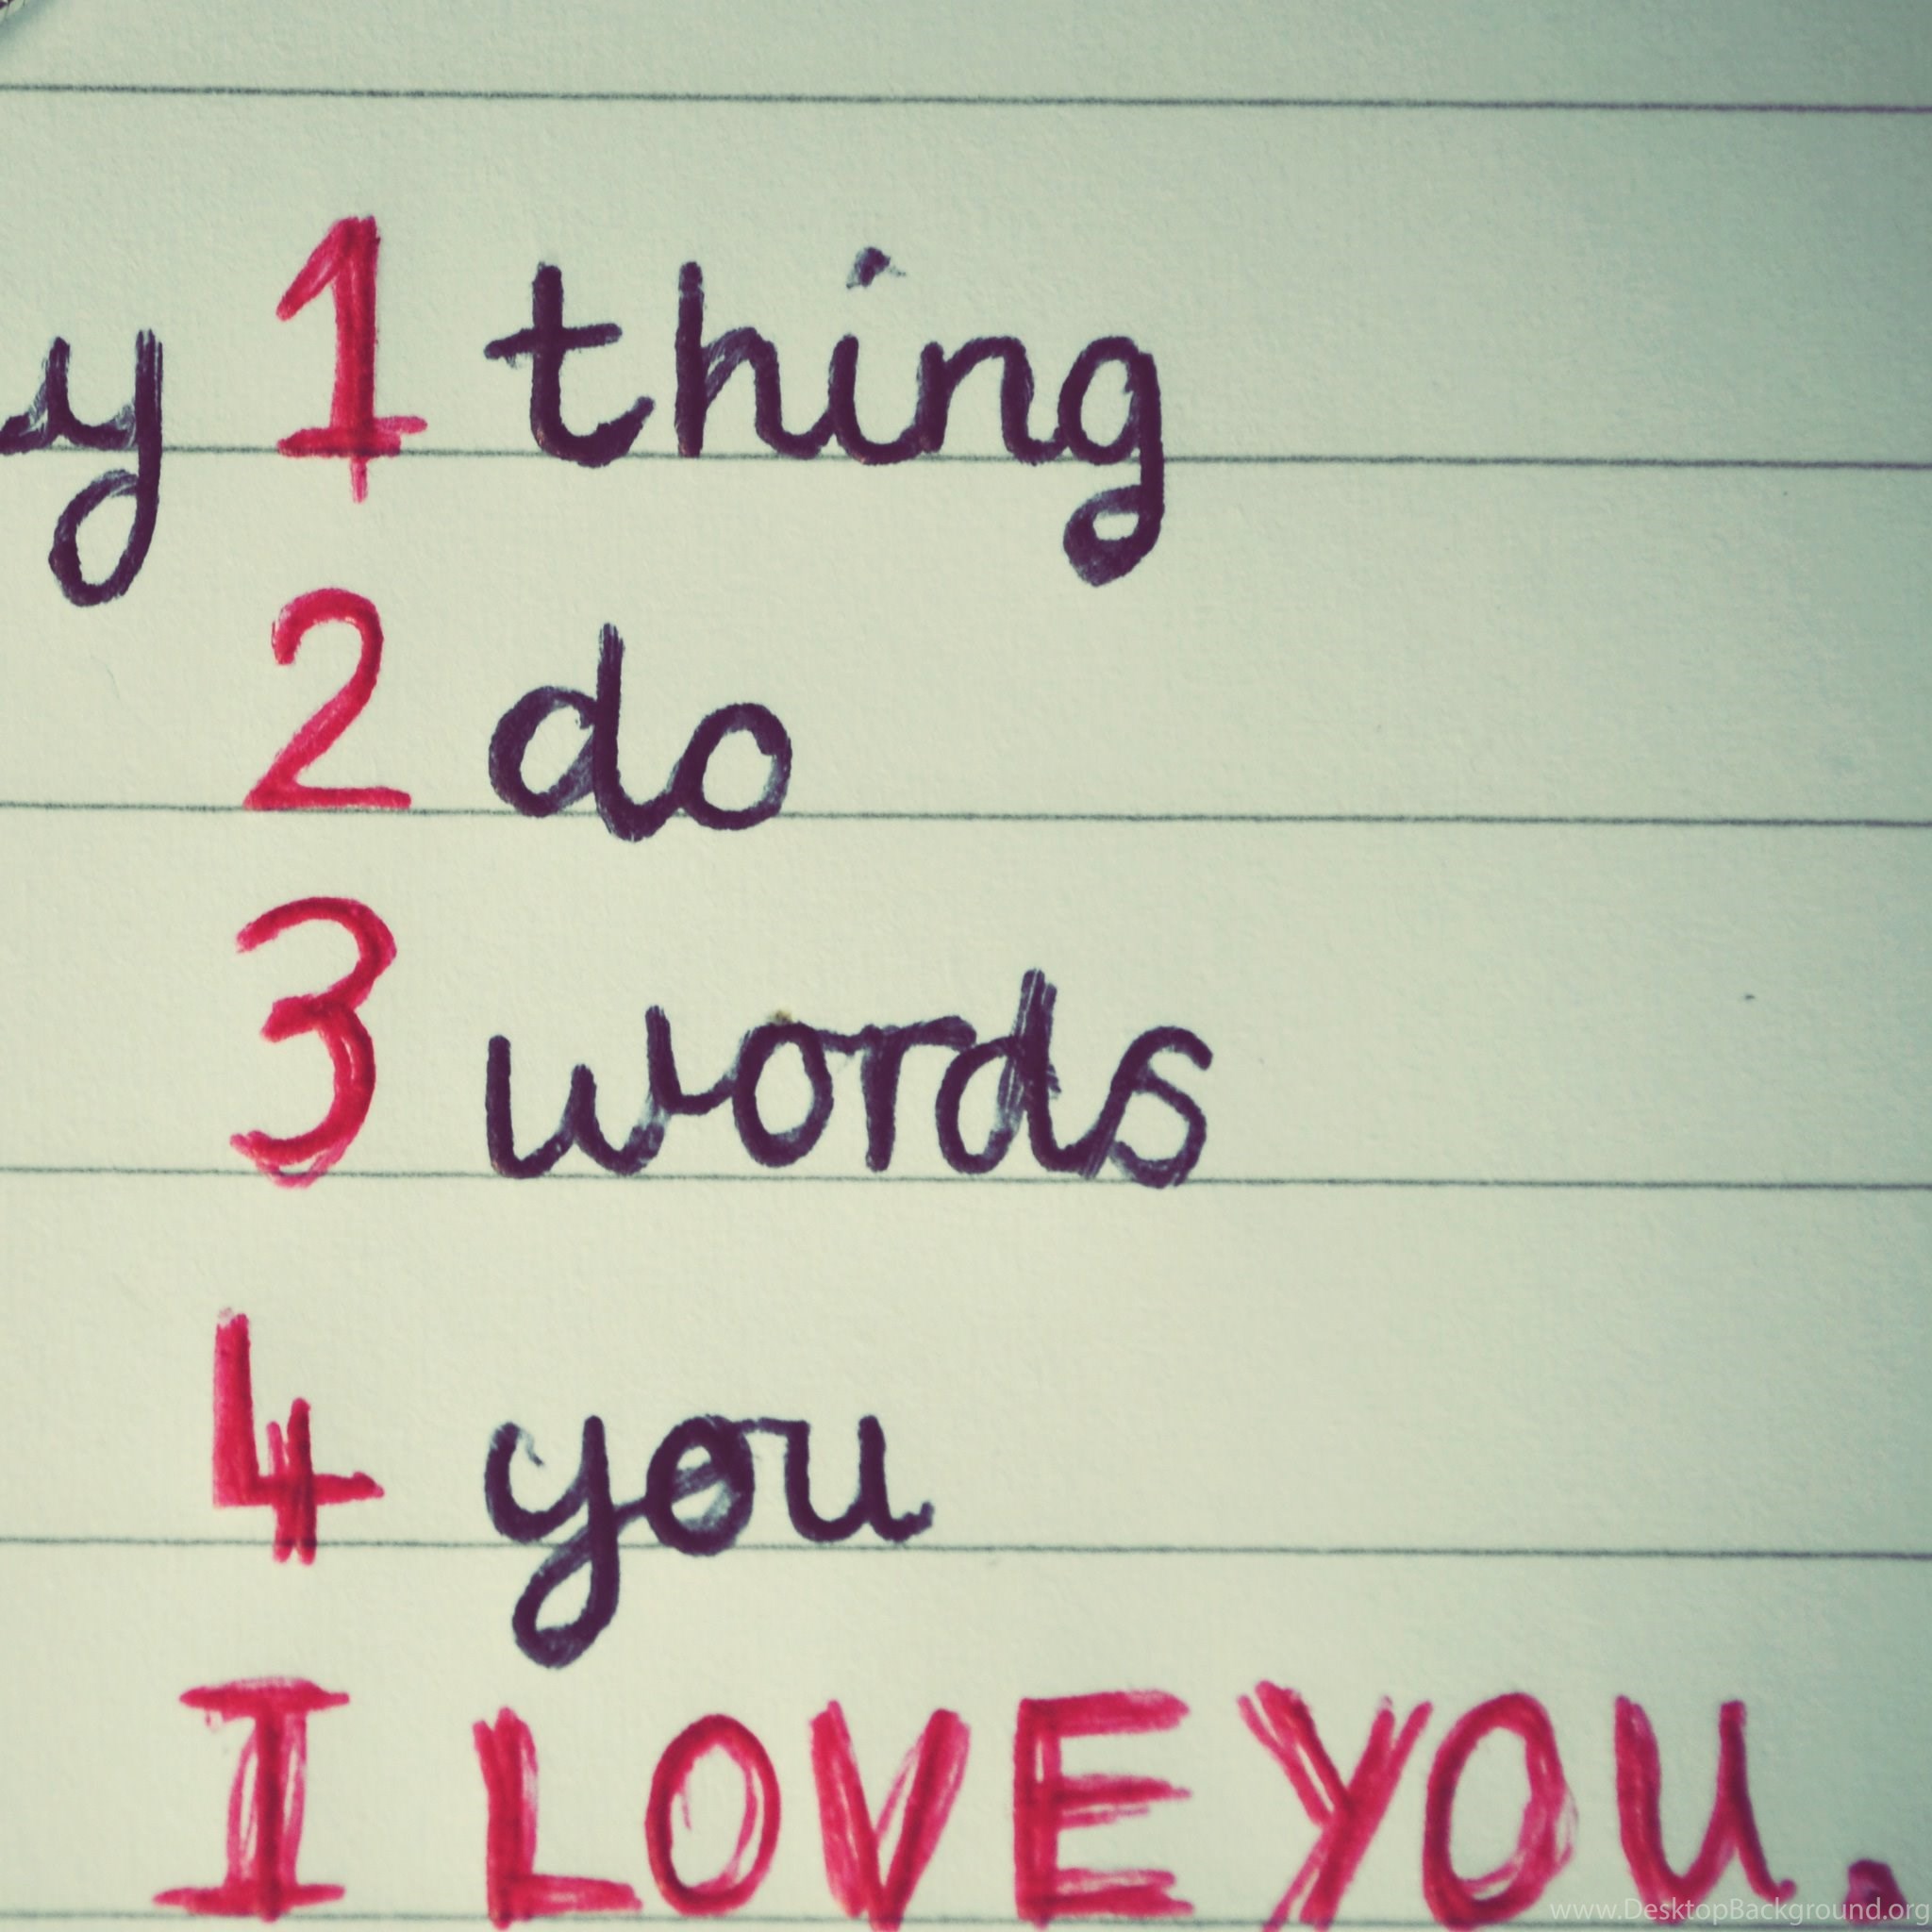 1 thing
2 do
3 words
4 you
I LOVE YOU.
www.DesktopBackground.org